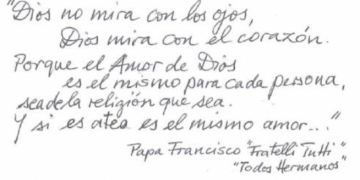 "Dios no mira con los ojos,
Dios mira con el corazón.
Porque el Amor de Dios
es el mismo para cada persona,
sea de la religión que sea.
Y si es atea es el mismo amor..."
Papa Francisco "Fratelli Tutti"
"Todos Hermanos"